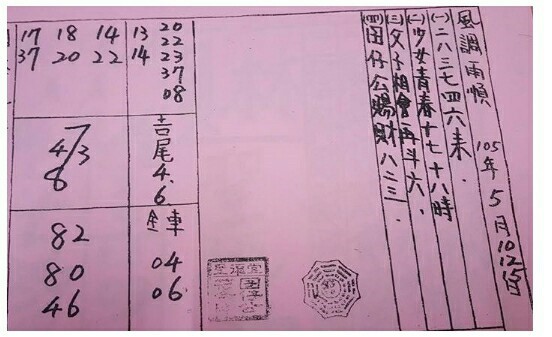 風調雨順
105年5月10 12 15
(一)二八三七四六来.
(二)少女青春十七十八時
(三)父子相會再斗六.
(四)田仔公賜財八二三.
13 20
22
14 23
37
08
尾
4.
6.
車
04
06
17 18 14
37 20 22
4 3
82
80
46